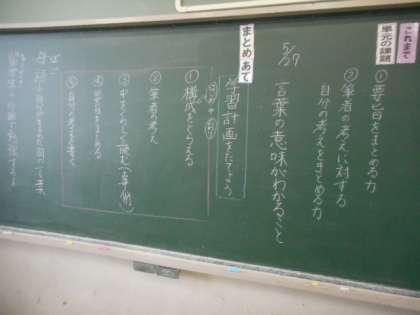 これまで
単元の課題
①要旨をまとめる力
②筆者の考えに対する
自分の考えをまとめる力
5/27
言葉の意味がわかること
まとめ
めあて
学習計画をたてよう
①構成をとらえる
②筆者の考え
③中をくわしく読む(事例)
④要旨をまとめる
⑤自分の考えを書く